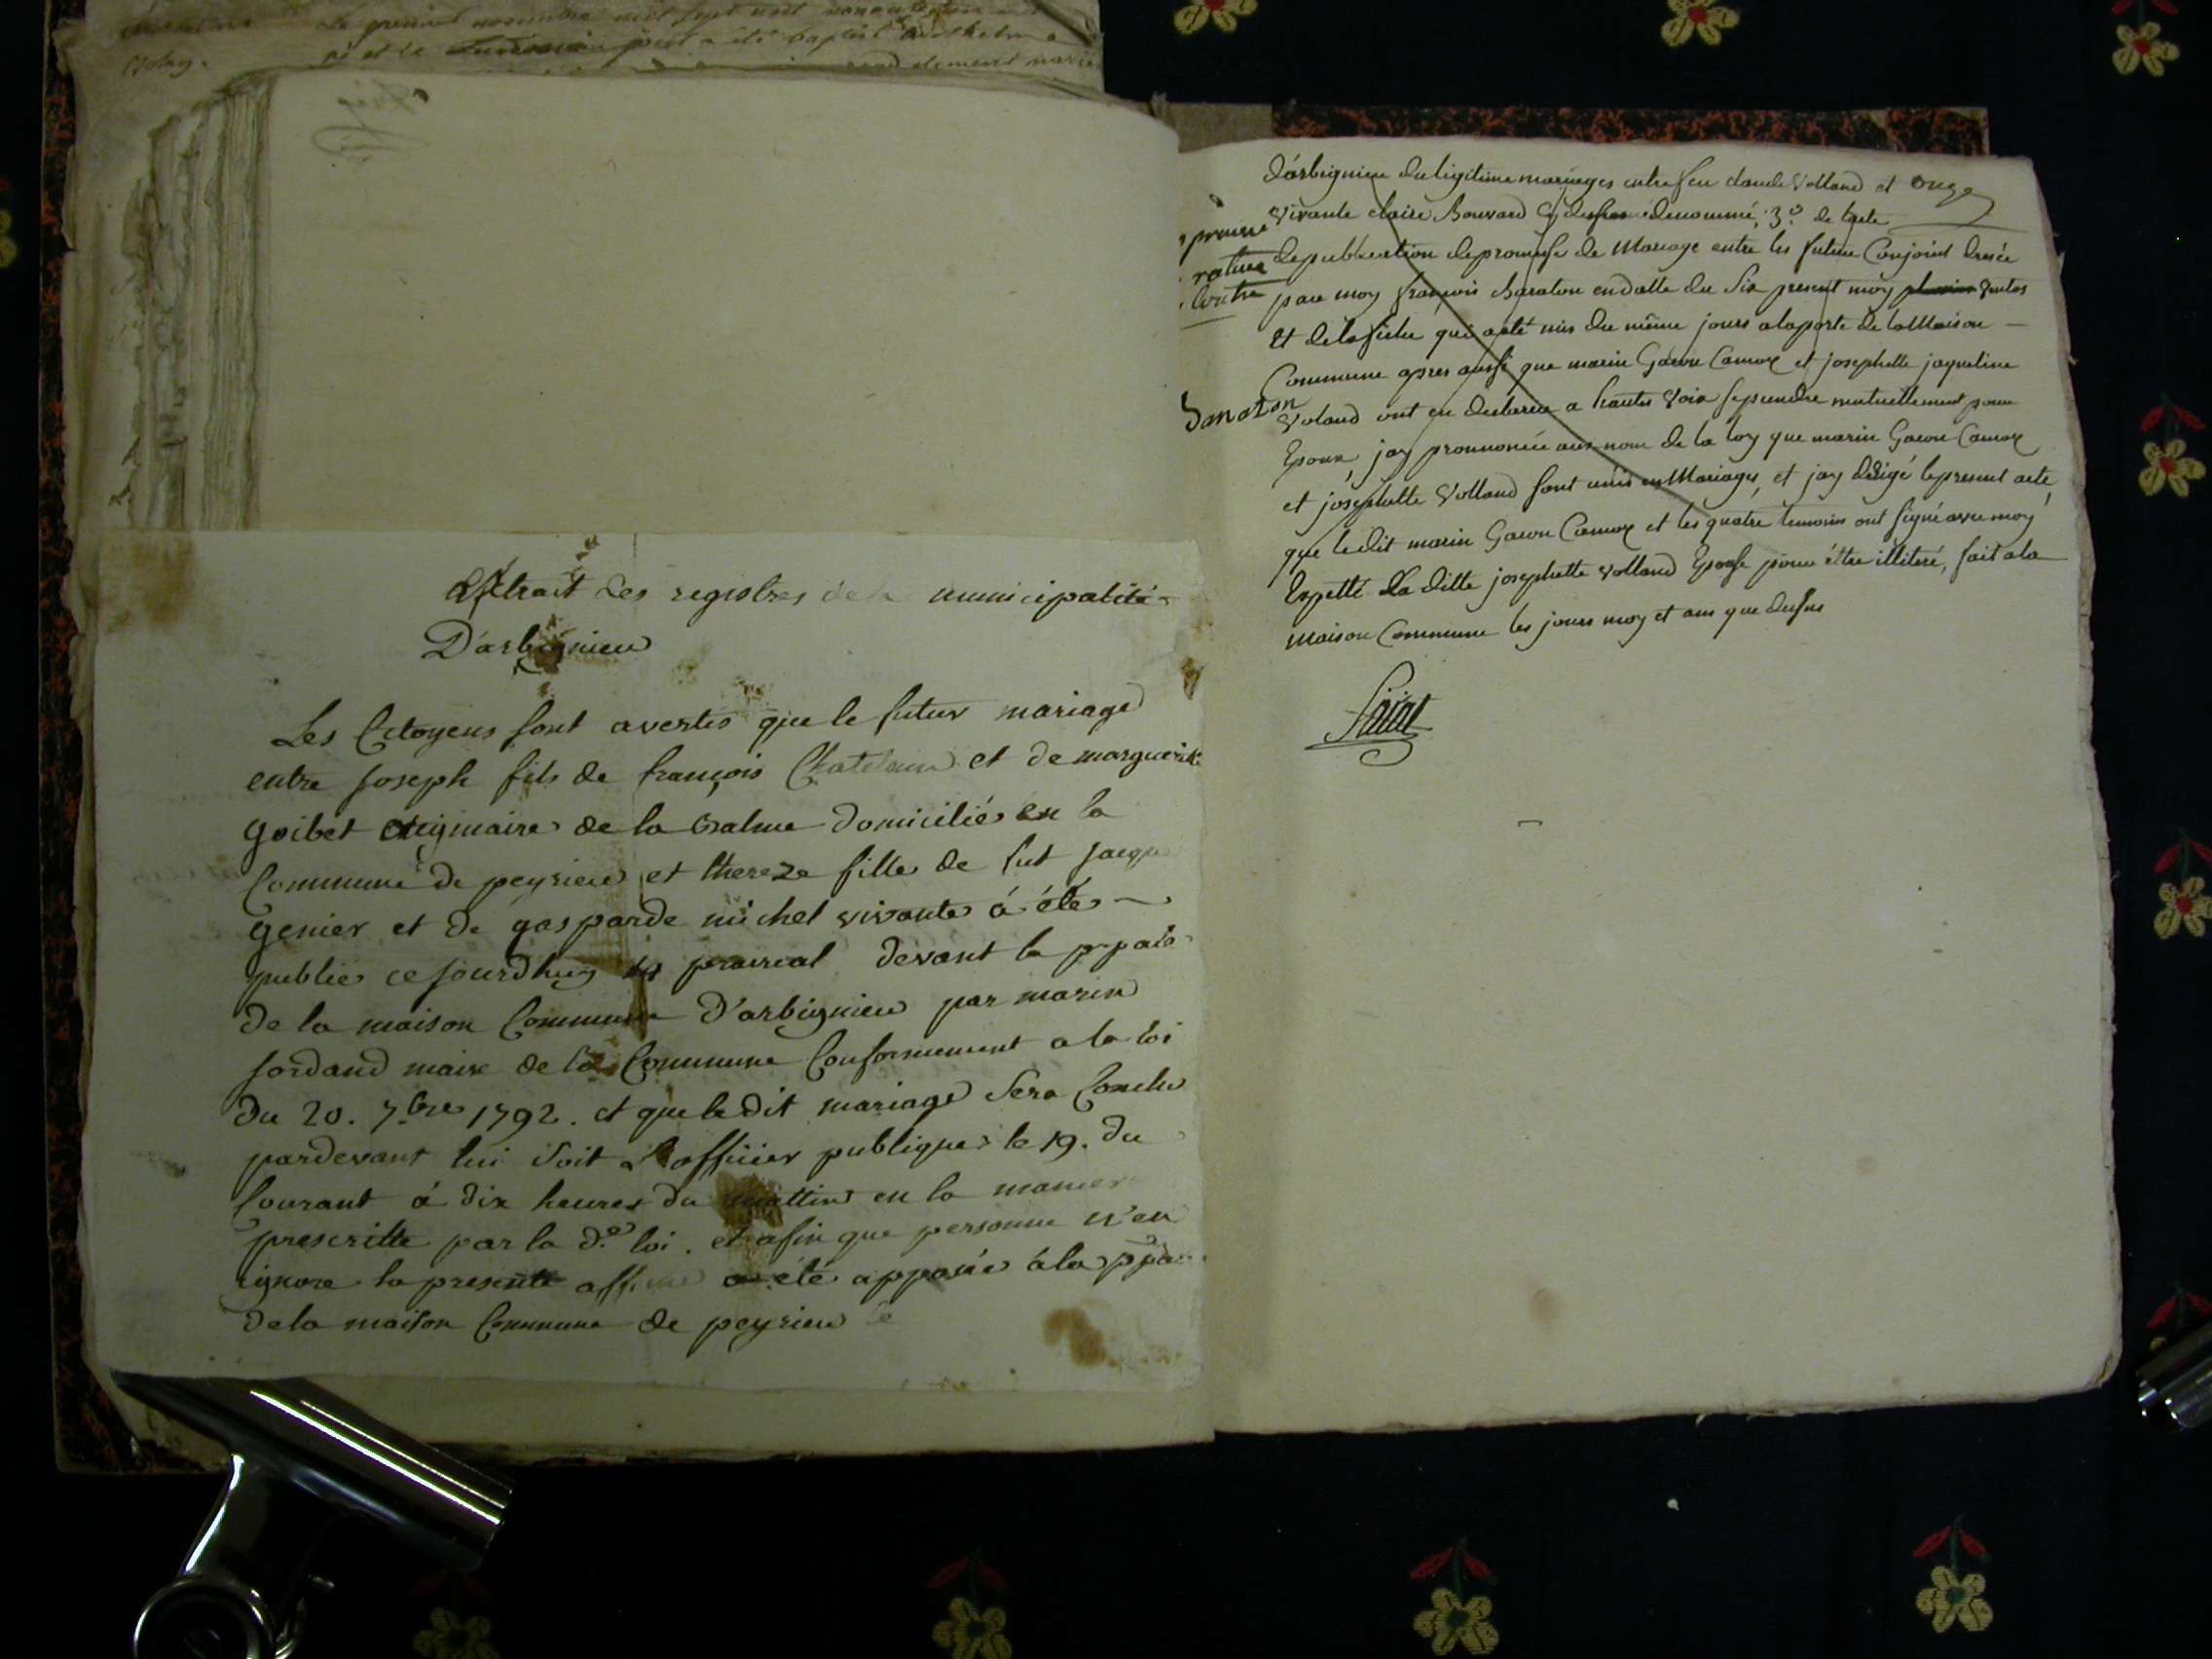 Le premier novembre mil sept cent
a été baptisé
Extrait des registres de la municipalité
D'arbignieu
Les Citoyens sont avertis que le futur mariage
entre Joseph fils de françois Chatelain et de marguerite
goibet originaire de la Balme domicilié en la
Commune de peyrieu et thereze fille de fut Jacque
genier et de gasparde michel vivante á été
publié ce jourdhuy prairial devant la
de la maison Commune D'arbignieu par marin
jordand maire de la Commune Conformement a la loi
du 20. 7.bre 1792. et que le dit mariage sera Conclu
pardevant lui soit l'officier publique le 19. du
Courant á dix heures du mattin en la manier
prescritte par la d.e loi. et afin que personne n'en
ignore la presente affiche a été apposée á la
de la maison Commune de peyrieu le
D'arbignieu du légitime mariages entre feu claude Volland et
vivante claire Bouvard denommé, 3.o de l'acte
de publication de promesse de Mariage entre les futur Conjoint dressée
par moy françois Baraton en datte du Six present moy
Et de l'afiche qui a été mis du même jours a la porte de la Maison
Commune apres aussi que marin Gacon Camoz et josephette jaqueline
Voland ont eu declarée a hautes voix se prendre mutuellement pour
Epoux, jay prononcée aux nom de la loy que marin Gacon Camoz
et josephette Volland sont unis en Mariages, et jay redigé le present acte
que le dit marin Gacon Camoz et les quatre temoins ont signé avec moy
Exepté La ditte josephette volland Epouse pour être illiteré, fait a la
Maison Commune les jours moy et an que dessus